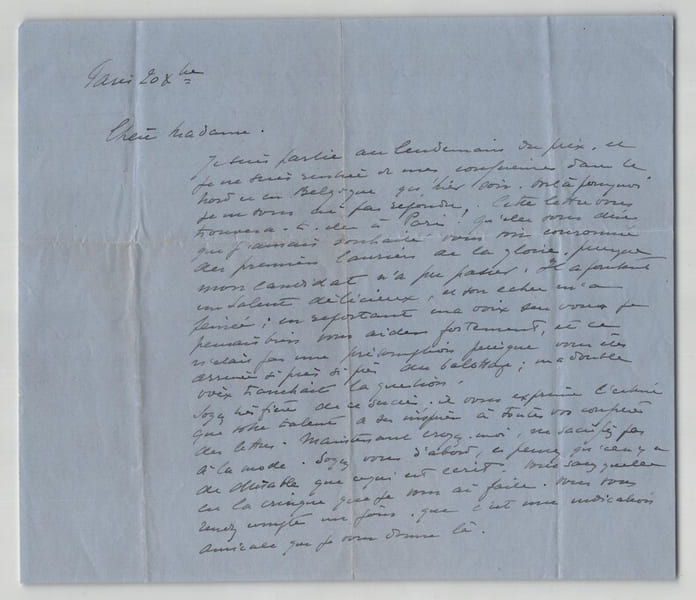 Paris 20 Xbre
Chère Madame.
Je suis partie au lendemain du prix, et
je ne suis rentrée de mes conférences dans le
nord et en Belgique qu'hier soir. Voilà pourquoi
je ne vous ai pas répondu! Cette lettre vous
trouvera-t-elle à Paris? qu'elle vous dise
que j'aurais souhaité vous voir couronnée
des premiers lauriers de la gloire, puisque
mon candidat n'a pu passer. Il a pourtant
un talent délicieux, et son échec m'a
peinée; en reportant ma voix sur vous je
pensais bien vous aider fortement, et ce
n'était pas une présomption puisque vous êtes
arrivée si près si près du ballottage; ma double
voix tranchait la question!
Soyez très fière de ce succès. Il vous exprime l'estime
que votre talent a su inspirer à toutes vos confrères
des lettres. Maintenant croyez-moi, ne sacrifiez pas
à la mode. Soyez vous d'abord, et pensez qu'il n'y a
de durable que ce qui est écrit.
la critique que je vous ai faite. Vous vous
rendrez compte un jour que c'est une indication
amicale que je vous donne là.